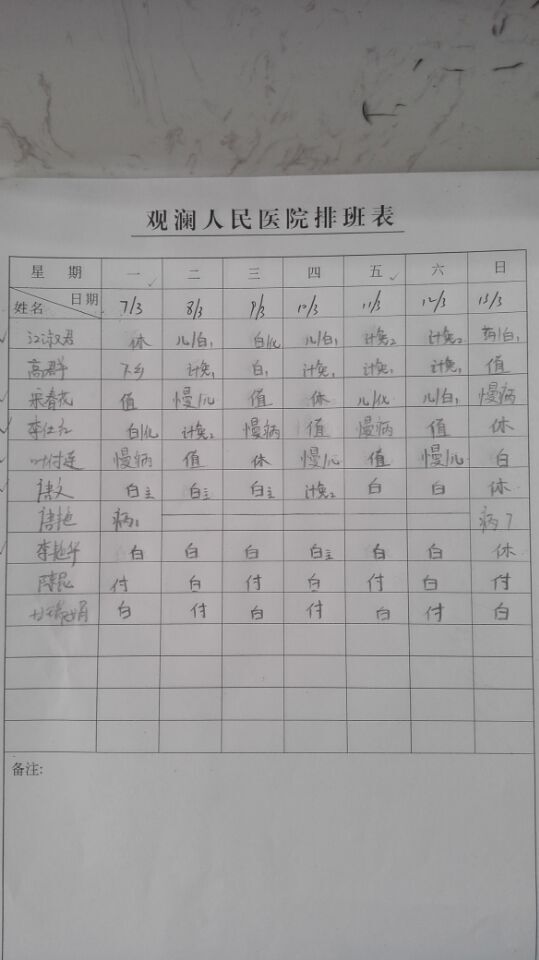 观澜人民医院排班表
星 期 一 二 三 四 五 六 日
姓名 日期 7/3 8/3 9/3 10/3 11/3 12/3 13/3
江淑君 休 儿/白1 白/化 儿/白1 计免2 计免2 /白1
高群 下乡 计免1 白1 计免1 计免1 计免1 值
宋春花 值 慢/儿 值 休 儿/化 儿/白1 慢病
李仕红 白/化 计免2 慢病 值 慢病 值 休
叶付莲 慢病 值 休 慢/儿 值 慢/儿 白
唐文 白主 白主 白主 计免2 白 白 休
唐艳 病1 病7
李艳华 白 白 白 白主 白 白 休
陈昆 付 白 付 白 付 白 付
甘瑞娟 白 付 白 付 白 付 白
备注: